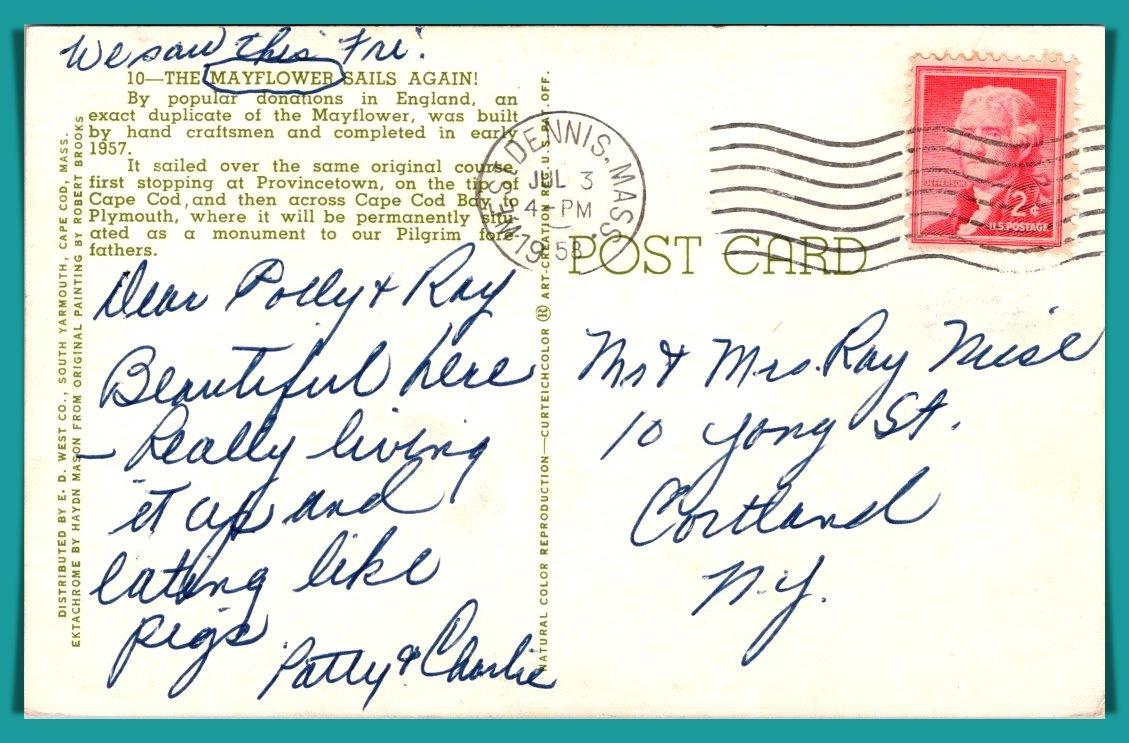 We saw this Fri.
10—THE MAYFLOWER SAILS AGAIN!
By popular donations in England, an
exact duplicate of the Mayflower, was built
by hand craftsmen and completed in early
1957.
It sailed over the same original course,
first stopping at Provincetown, on the tip of
Cape Cod, and then across Cape Cod Bay to
Plymouth, where it will be permanently situ-
ated as a monument to our Pilgrim fore-
fathers.
Dear Polly & Ray
Beautiful here
— Really living
it up and
eating like
pigs
Patty & Charlie
DISTRIBUTED BY E. D. WEST CO., SOUTH YARMOUTH, CAPE COD, MASS.
EKTACHROME BY HAYDN MASON FROM ORIGINAL PAINTING BY ROBERT BROOKS
NATURAL COLOR REPRODUCTION—CURTEICHCOLOR ® ART-CREATION REG. U.S. PAT. OFF.
WEST DENNIS, MASS.
JUL 3
4-PM
1958
JEFFERSON
2¢
U.S. POSTAGE
POST CARD
Mr & Mrs. Ray
10 Yong St.
Cortland
N.Y.